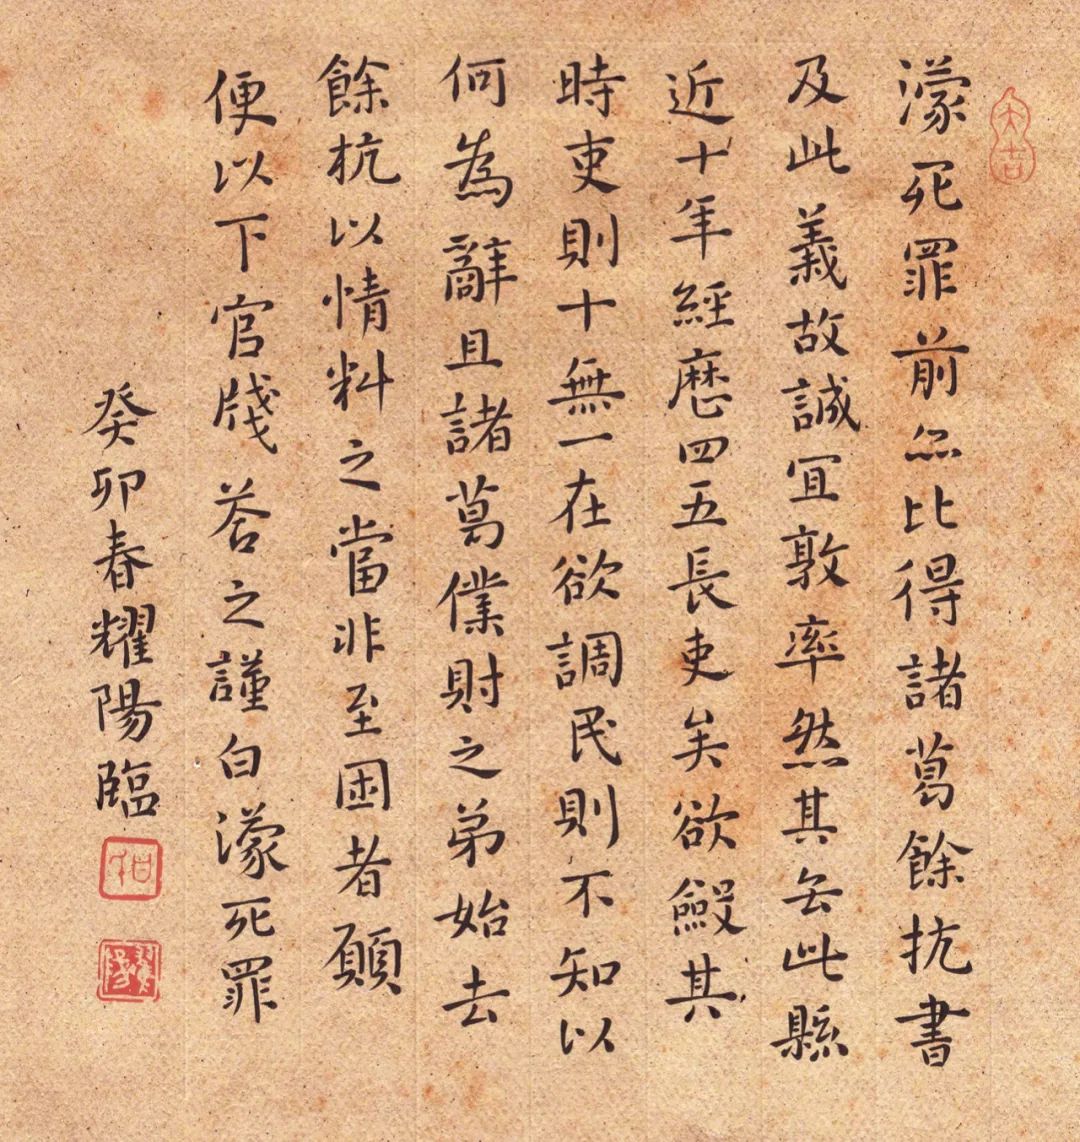 大吉
濛死罪前亦比得諸葛餘抗書
及此義故誠宜敦率然其去此縣
近十年經歷四五長吏矣欲斂其
時吏則十無一在欲調民則不知以
何為辭且諸葛僕財之弟始去
餘杭以情料之當非至困者願
便以下官牋荅之謹白濛死罪
癸卯春耀陽臨